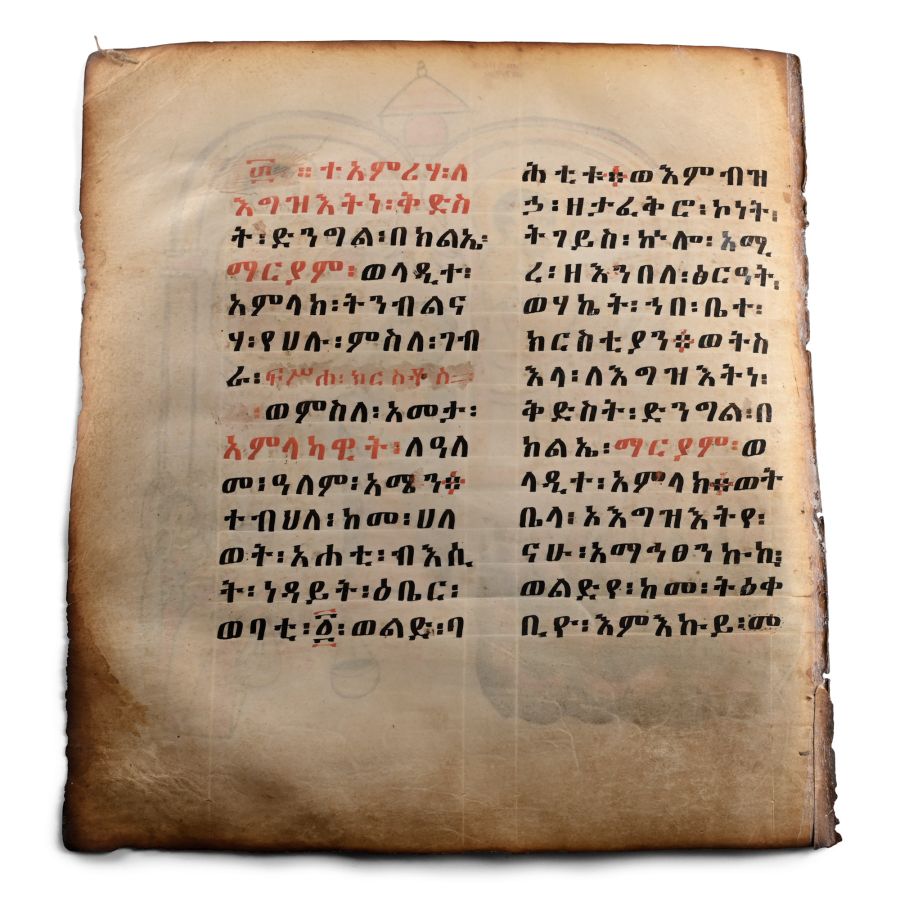 ፴ ። ተአምሪሃ፡ለ
እግዝእትነ፡ቅድስ
ት፡ድንግል፡በክልኤ፡
ማርያም፡ወላዲተ፡
አምላክ፡ትንብልና
ሃ፡የሀሉ፡ምስለ፡ገብ
ራ፡ፍሥሐ፡ክርስቶስ፡
ወምስለ፡አመታ፡
አምላካዊት፡ለዓለ
መ፡ዓለም፡አሜን፨
ተብህለ፡ከመ፡ሀለ
ወት፡አሐቲ፡ብእሲ
ት፡ነዳይት፡ዕቤር፡
ወባቲ፡፩፡ወልድ፡ባ
ሕቲቱ፨ወእምብዝ
ኃ፡ዘታፈቅሮ፡ኮነት፡
ትገይስ፡ኵሎ፡አሚ
ረ፡ዘእንበለ፡ፅርዓት፡
ወሃኬት፡ኀበ፡ቤተ፡
ክርስቲያን፨ወትስ
እላ፡ለእግዝእትነ፡
ቅድስት፡ድንግል፡በ
ክልኤ፡ማርያም፡ወ
ላዲተ፡አምላክ፨ወት
ቤላ፡ኦእግዝእትየ፡
ናሁ፡አማኅፀንኩኪ፡
ወልድየ፡ከመ፡ትዕቀ
ቢዮ፡እምእኩይ፡መ